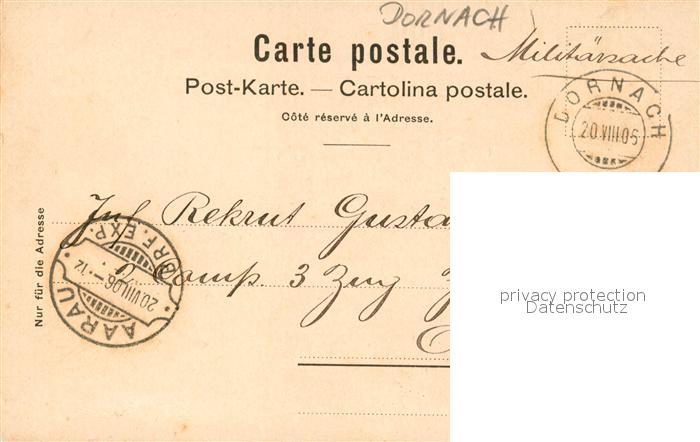 DORNACH
Carte postale. Militärsache
Post-Karte. — Cartolina postale.
Côté réservé à l'Adresse.
DORNACH
20.VIII.06
Nur für die Adresse
Inf Rekrut Gusta
2 Comp. 3 Zug
AARAU
20.VIII.06.-12
BRF. EXP.
privacy protection
Datenschutz